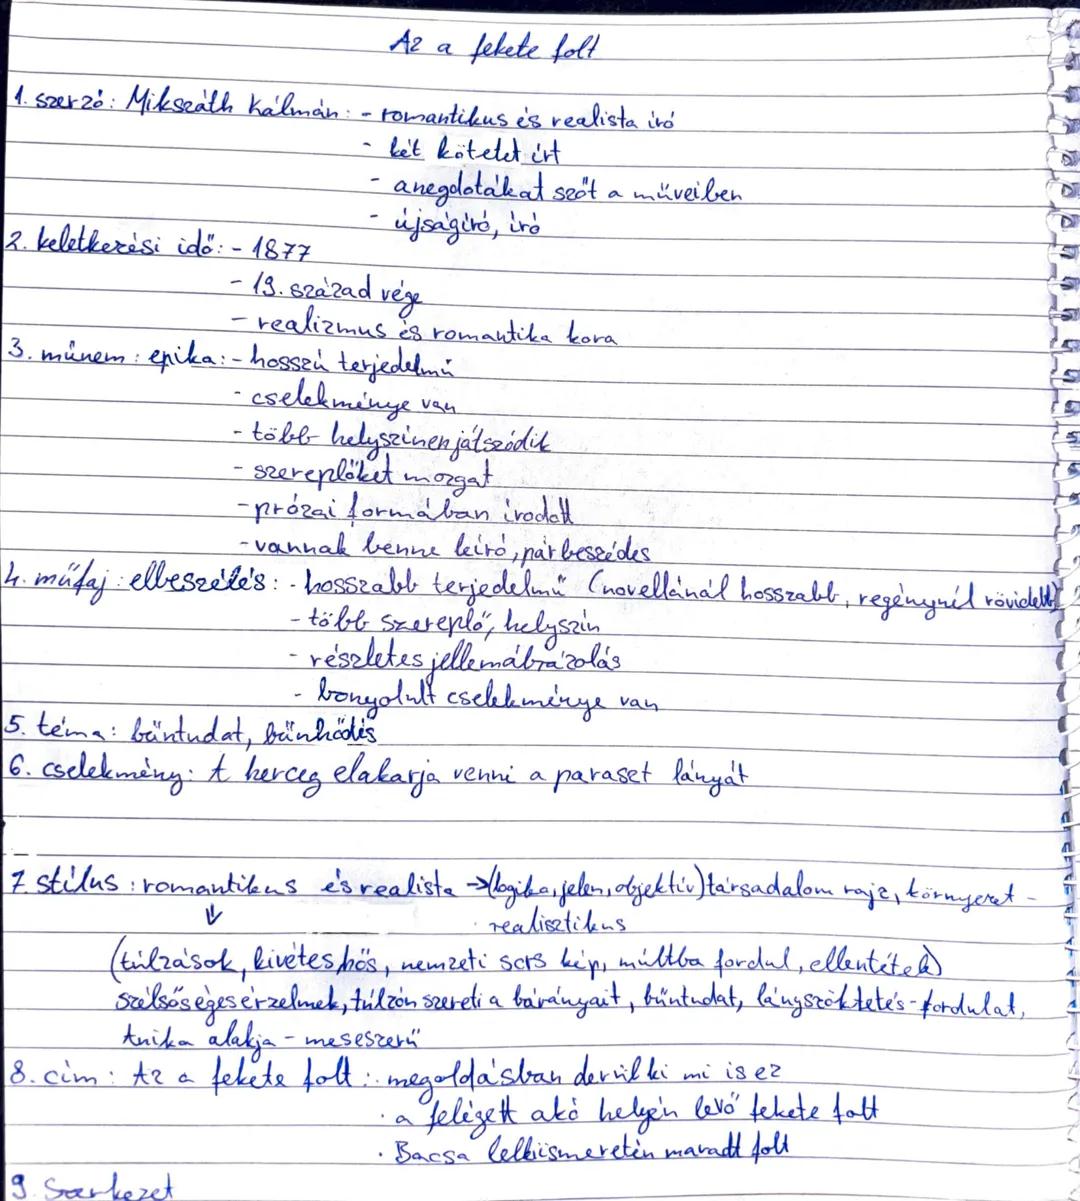 Az a fekete folt
1. szerző: Mikszáth Kálmán: - romantikus és realista író
- két kötetet írt
- anegdotákat szőt a műveiben
- újságíró, író
2. keletkezési idő: - 1877
- 19. század vége
- realizmus és romantika kora
3. műnem: epika: - hosszú terjedelmű
- cselekménye van
- több helyszínen játszódik
- szereplőket mozgat
- prózai formában íródott
- vannak benne leíró, párbeszédes
4. műfaj: elbeszélés: - hosszabb terjedelmű (novellánál hosszabb, regénynél rövidebb)
- több szereplő, helyszín
- részletes jellemábrázolás
- bonyolult cselekménye van
5. téma: bűntudat, bűnhődés
6. cselekmény: A herceg elakarja venni a paraszt lányát
7. stílus: romantikus és realista → (logika, jelen, objektív) társadalom rajz, környezet -
↓ realisztikus
(túlzások, kivételes hős, nemzeti sors kép, múltba fordul, ellentétek)
szélsőséges érzelmek, túlzón szereti a bárányait, bűntudat, lányszöktetés - fordulat,
Anika alakja - meseszerű
8. cím: Az a fekete folt: · megoldásban derül ki mi is ez
· a felégett akó helyén levő fekete folt
· Bacsa lelkiismeretén maradt folt
9. Szerkezet